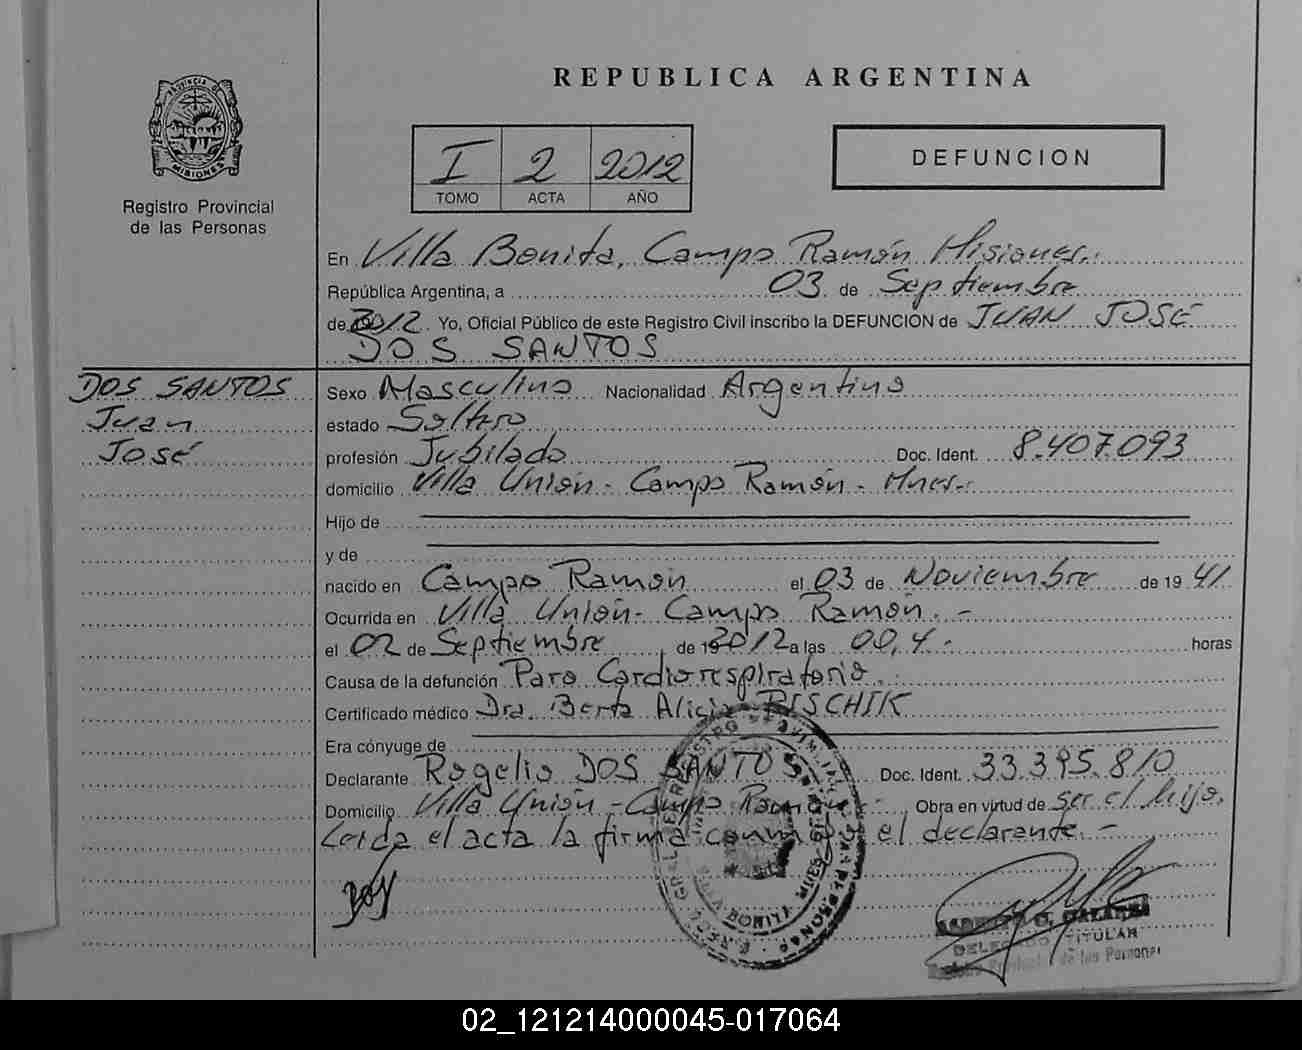 PROVINCIA DE
MISIONES
Registro Provincial
de las Personas
REPUBLICA ARGENTINA
I 2 2012
TOMO ACTA AÑO
DEFUNCION
En Villa Bonita, Campo Ramón Misiones.
República Argentina, a 03 de Septiembre
de 2012. Yo, Oficial Público de este Registro Civil inscribo la DEFUNCION de JUAN JOSÉ
DOS SANTOS
DOS SANTOS
Juan
José
Sexo Masculino Nacionalidad Argentina
estado Soltero
profesión Jubilado Doc. Ident. 8.407.093
domicilio Villa Unión - Campo Ramón - Mnes.
Hijo de
y de
nacido en Campo Ramón el 03 de Noviembre de 19 41
Ocurrida en Villa Unión - Campo Ramón. -
el 02 de Septiembre de 2012 a las 00,4. - horas
Causa de la defunción Paro Cardiorrespiratorio.
Certificado médico Dra. Berta Alicia PISCHIK
Era cónyuge de
Declarante Rogelio DOS SANTOS Doc. Ident. 33.395.810
Domicilio Villa Unión - Campo Ramón - Obra en virtud de ser el hijo.
Leída el acta la firma conmigo el declarante. -
DELEGADO TITULAR
Registro Provincial de las Personas
02_121214000045-017064